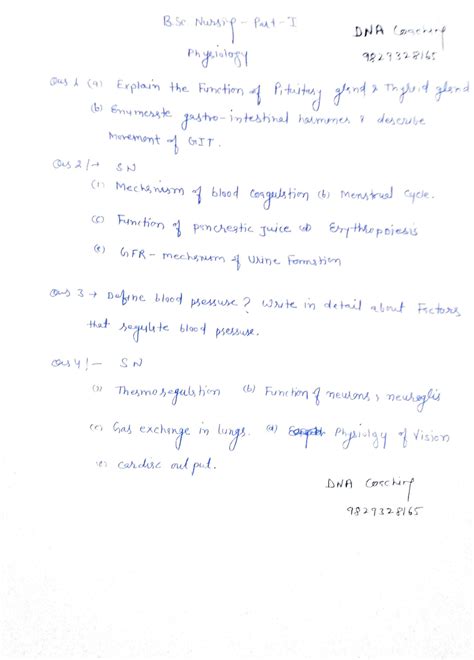 B.Sc Nursing - Part - I
DNA Coaching
Physiology
9829328165
Ques 1 (a) Explain the Function of Pituitary gland & Thyroid gland
(b) Enumerate gastro-intestinal harmones & describe
Movement of GIT.
Ques 2/→ SN
(1) Mechanism of blood coagulation (b) Menstrual Cycle.
(c) Function of pancreatic juice (d) Erythropoiesis
(e) GFR - mechanism of Urine Formation
Ques 3 → Define blood pressure? Write in detail about Factors
that regulate blood pressure.
Ques 4/- SN
(1) Thermoregulation (b) Function of neurons, neuroglia
(c) Gas exchange in lungs. (d) Physiolgy of Vision
(e) cardiac output.
DNA Coaching
9829328165